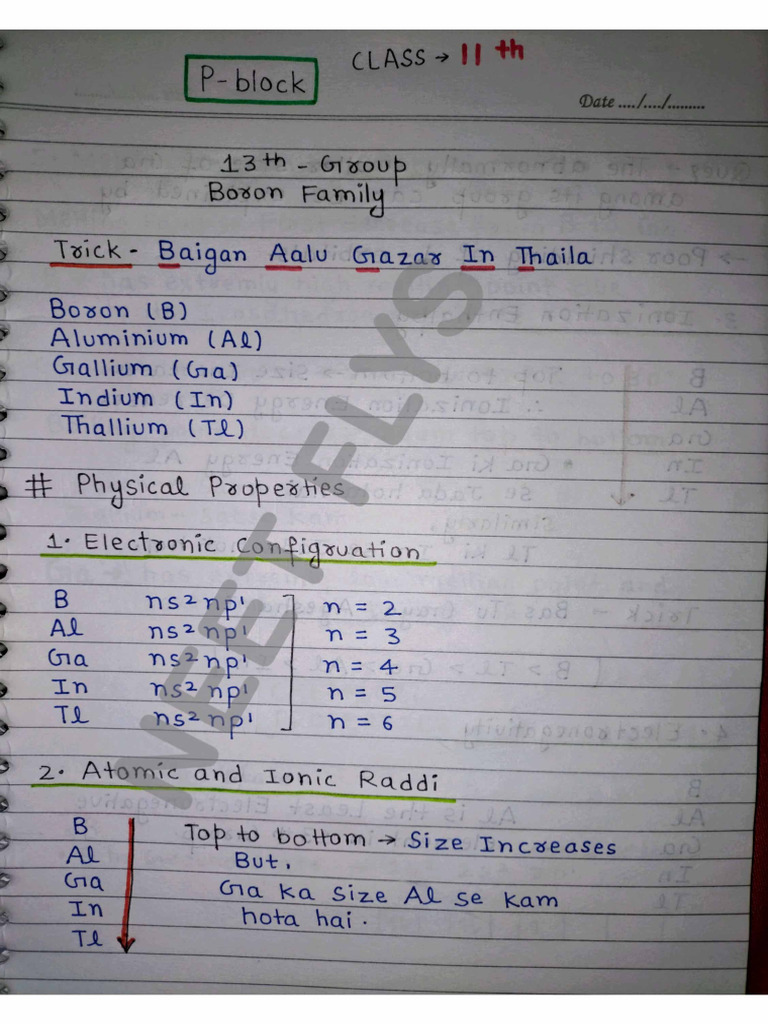 P-block
CLASS → 11 th
Date ..../..../.........
13th - Group
Boron Family
Trick - Baigan Aalu Gazar In Thaila
Boron (B)
Aluminium (Al)
Gallium (Ga)
Indium (In)
Thallium (Tl)
# Physical Properties
1. Electronic Configruation
B ns² np¹ n = 2
Al ns² np¹ n = 3
Ga ns² np¹ n = 4
In ns² np¹ n = 5
Tl ns² np¹ n = 6
2. Atomic and Ionic Raddi
B
Al
Ga
In
Tl
Top to bottom → Size Increases
But,
Ga ka Size Al se kam
hota hai.
NEET FLYS